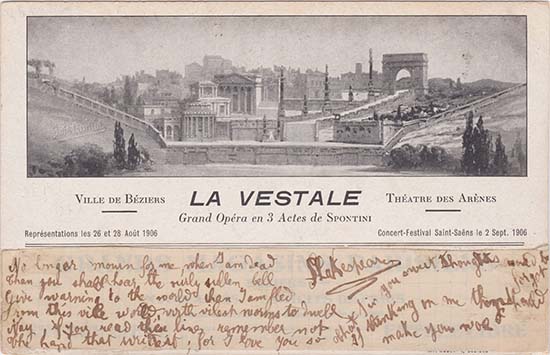 VILLE DE BÉZIERS
LA VESTALE
THÉATRE DES ARÈNES
Grand Opéra en 3 Actes de SPONTINI
Représentations les 26 et 28 Août 1906
Concert-Festival Saint-Saëns le 2 Sept. 1906
No longer mourn for me when I am dead
Than you shall hear the surly sullen bell
Give warning to the world that I am fled
From this vile world with vilest worms to dwell
Nay, if you read these lines, remember not
The hand that writ it, for I love you so
Shakespeare
that I in your sweet thoughts would be forgot
If thinking on me then should
make you woe